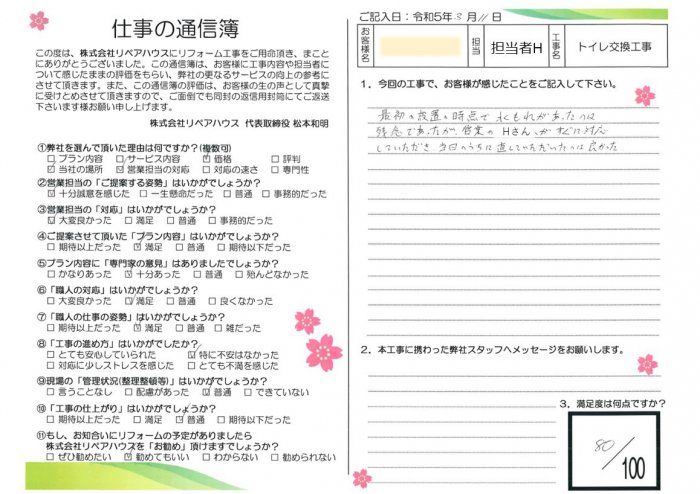 仕事の通信簿
この度は、株式会社リペアハウスにリフォーム工事をご用命頂き、まこと
にありがとうございました。当社では、お客様に工事内容や担当者に
ついて感じたままの評価をもらい、弊社の更なるサービスの向上の参考に
させて頂きます。また、この通信簿の評価は、お客様の生の声として真摯
に受けとめさせて頂きますので、ご面倒でも同封の返信用封筒にてご返送
下さいます様お願い申し上げます。
株式会社リペアハウス 代表取締役 松本和明
①弊社を選んで頂いた理由は何ですか?(複数可)
□プラン内容 □サービス内容 ☑価格 □評判
□当社の場所 ☑営業担当の対応 □対応の速さ □専門性
②営業担当の「ご提案する姿勢」はいかがでしょうか?
☑十分誠意を感じた □一生懸命だった □普通 □事務的だった
③営業担当の「対応」はいかがでしょうか?
☑大変良かった □満足 □普通 □事務的だった
④ご提案させて頂いた「プラン内容」はいかがでしょうか?
□期待以上だった ☑満足 □普通 □期待以下だった
⑤プラン内容に「専門家の意見」はありましたでしょうか?
□かなりあった ☑十分あった □普通 □殆んどなかった
⑥「職人の対応」はいかがでしょうか?
□大変良かった ☑満足 □普通 □良くなかった
⑦「職人の仕事の姿勢」はいかがでしょうか?
□期待以上だった ☑満足 □普通 □雑だった
⑧「工事の進め方」はいかがでしたか?
□とても安心していられた ☑特に不安はなかった
□対応に少しストレスを感じた □とても不満を感じた
⑨現場の「管理状況(整理整頓等)」はいかがでしょうか?
□言うことなし □配慮があった ☑普通 □できていない
⑩「工事の仕上がり」はいかがでしょうか?
□期待以上だった □満足 ☑普通 □期待以下だった
⑪もし、お知合いにリフォームの予定がありましたら
株式会社リペアハウスを「お勧め」頂けますでしょうか?
□ぜひ勧めたい ☑勧めてもいい □わからない □勧められない
ご記入日:令和5年3月11日
お客様名
担当
担当者H
工事名
トイレ交換工事
1.今回の工事で、お客様が感じたことをご記入して下さい。
最初の設置の時点で水もれがあったのは
残念であったが、営業のHさんがすぐに対応
していただき当日のうちに直していただいたのは良かった
2.本工事に携わった弊社スタッフへメッセージをお願いします。
3.満足度は何点ですか?
80/100